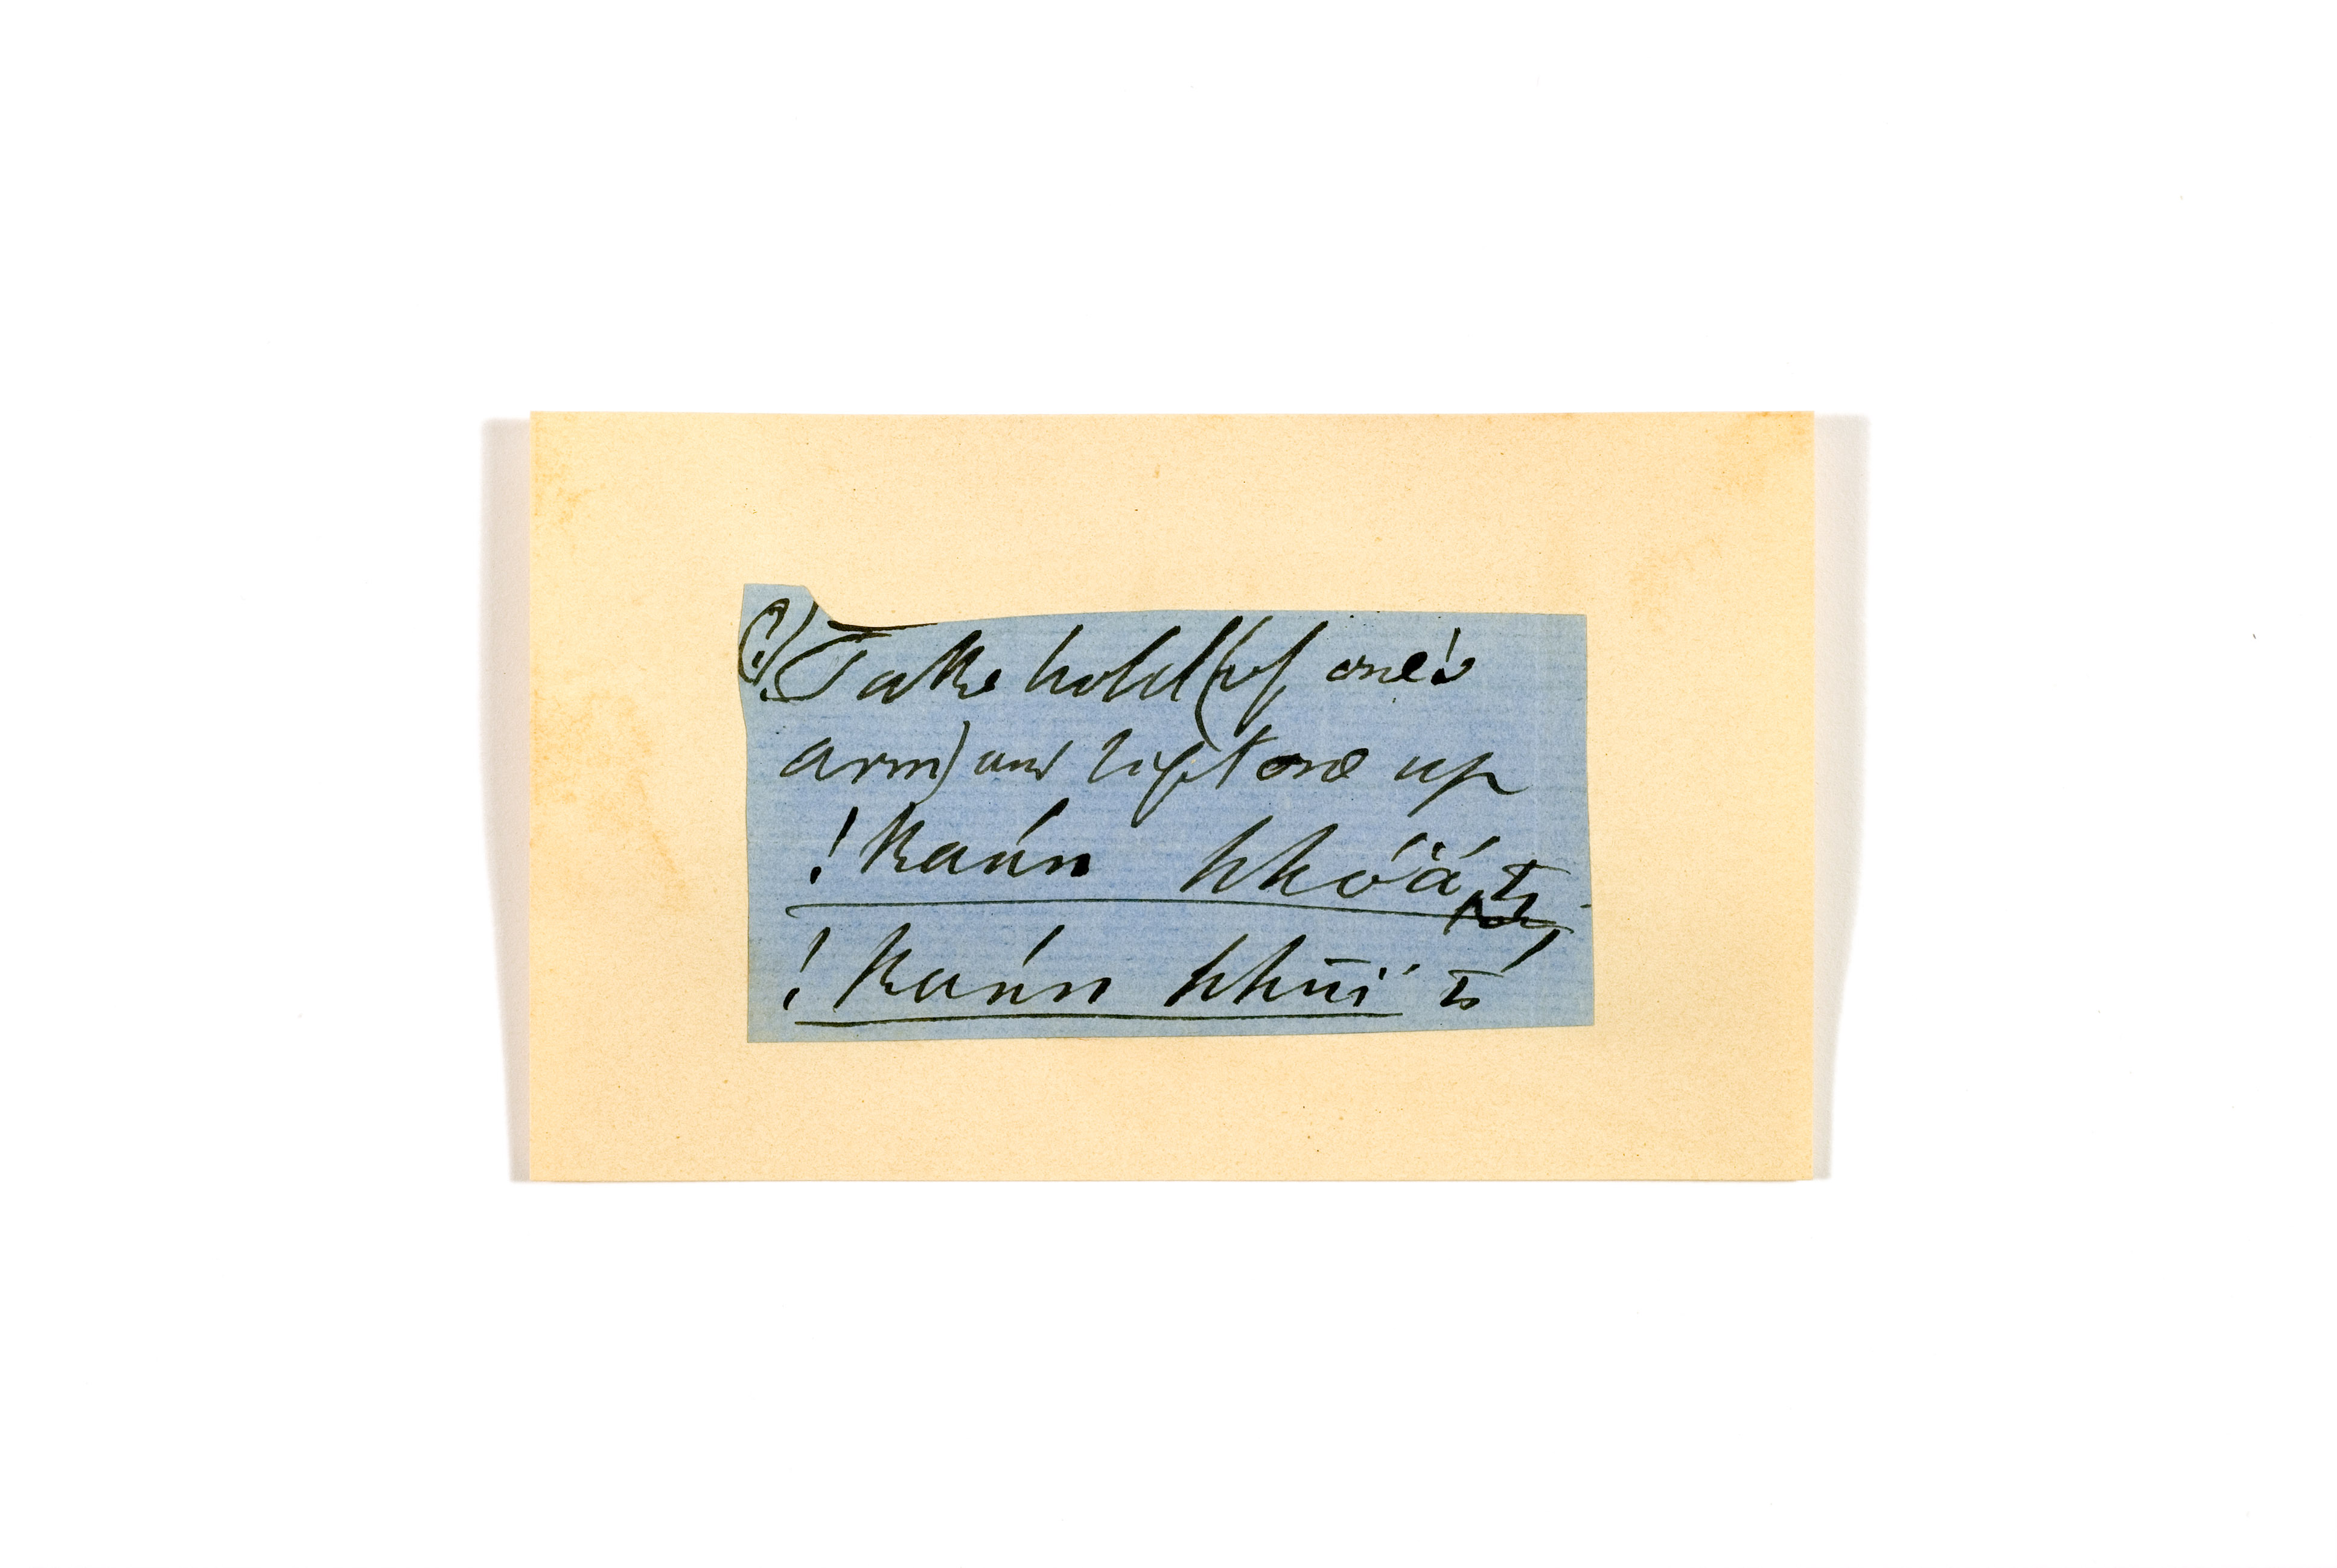 (?) Take hold (of one's
arm) and lift one up
! kaún hhóä́
! kaún hhūï